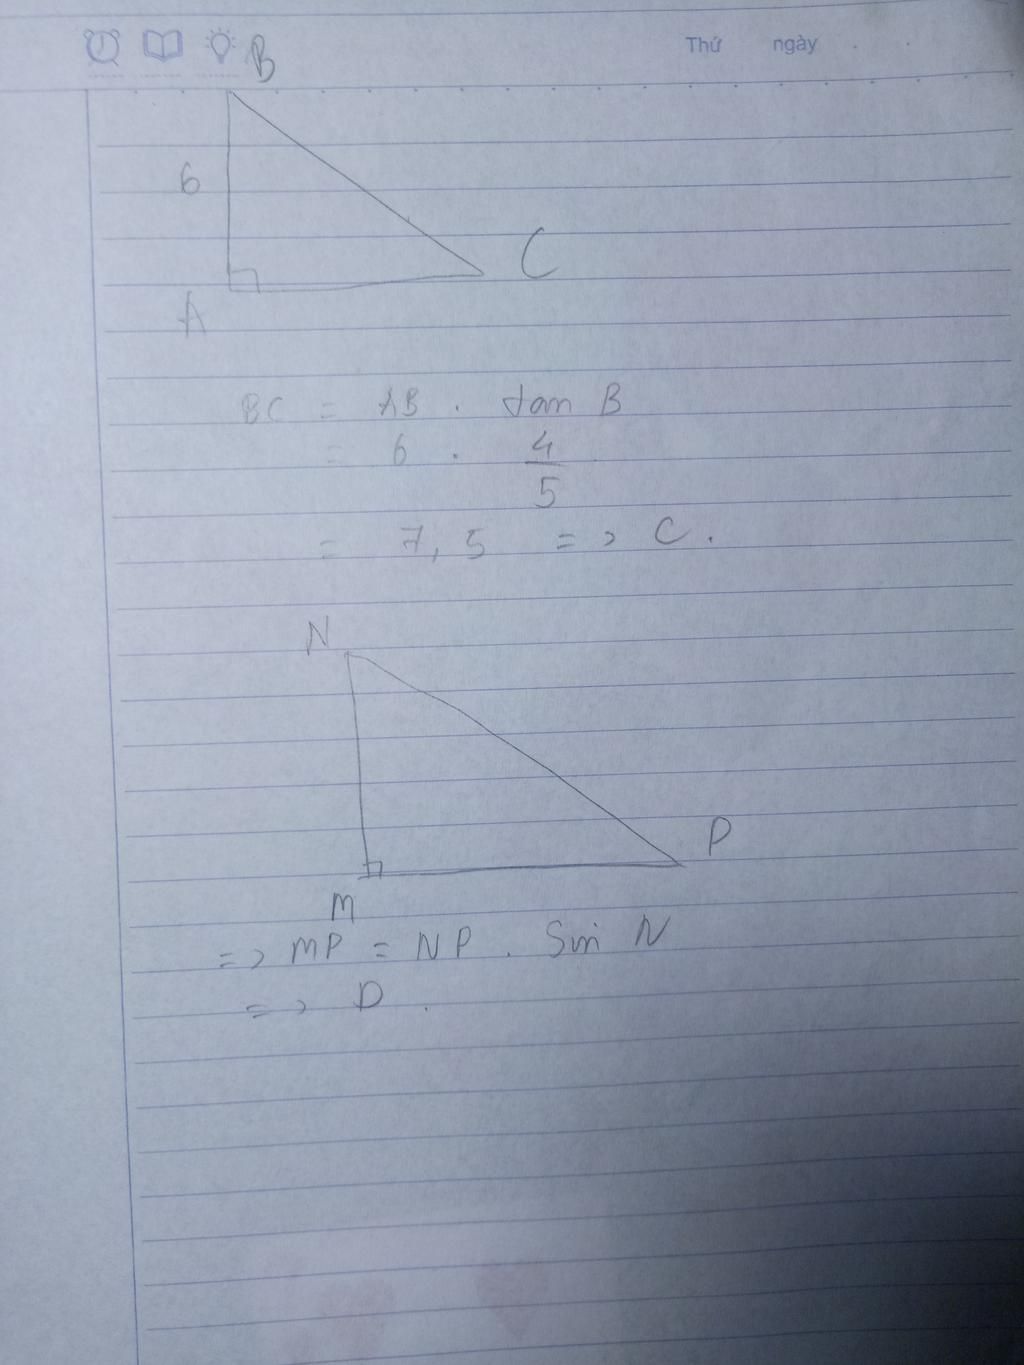 Thứ ngày
B
6
C
A
BC = AB . tan B
= 6 . 4/5
= 7,5 => C.
N
P
M
=> MP = NP . Sin N
=> D.